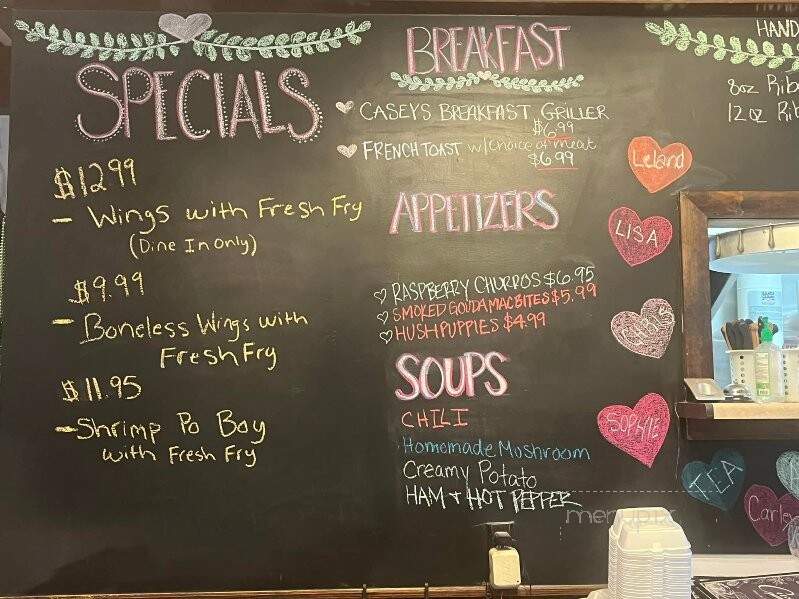 SPECIALS
$12.99
- Wings with Fresh Fry
(Dine In only)
$9.99
- Boneless Wings with
Fresh Fry
$11.95
- Shrimp Po Boy
with Fresh Fry
BREAKFAST
CASEYS BREAKFAST GRILLER
$6.99
FRENCH TOAST w/choice of meat
$6.99
APPETIZERS
RASPBERRY CHURROS $6.95
SMOKED GOUDA MAC BITES $5.99
HUSHPUPPIES $4.99
SOUPS
CHILI
Homemade Mushroom
Creamy Potato
HAM + HOT PEPPER
HAND
8oz Rib
12oz Rib
Leland
LISA
CHRIS
SOPHIE
TEA